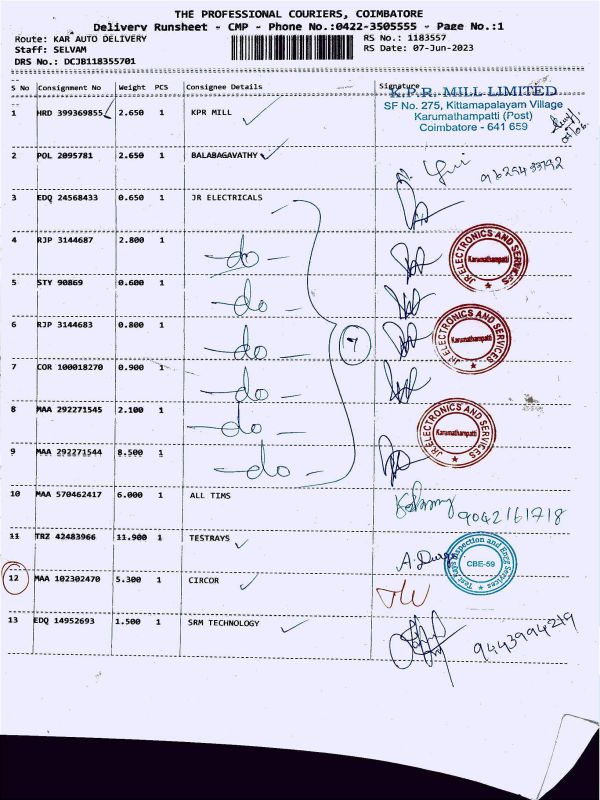 THE PROFESSIONAL COURIERS, COIMBATORE
Delivery Runsheet - CMP - Phone No.:0422-3505555 - Page No.:1
Route: KAR AUTO DELIVERY RS No.: 1183557
Staff: SELVAM RS Date: 07-Jun-2023
DRS No.: DCJB118355701
S No Consignment No Weight PCS Consignee Details Signature
K.P.R. MILL LIMITED
SF No. 275, Kittamapalayam Village
Karumathampatti (Post)
Coimbatore - 641 659
1 HRD 399369855 2.650 1 KPR MILL
2 POL 2095781 2.650 1 BALABAGAVATHY
3 EDQ 24568433 0.650 1 JR ELECTRICALS
4 RJP 3144687 2.800 1 -do-
JR ELECTRONICS AND SERVICES
Karumathampatti
5 STY 90869 0.600 1 -do-
6 RJP 3144683 0.800 1 -do-
JR ELECTRONICS AND SERVICES
Karumathampatti
7 COR 100018270 0.900 1 -do-
8 MAA 292271545 2.100 1 -do-
JR ELECTRONICS AND SERVICES
Karumathampatti
9 MAA 292271544 8.500 1 -do-
7
10 MAA 570462417 6.000 1 ALL TIMS 9042161718
11 TRZ 42483966 11.900 1 TESTRAYS
Test Rays Inspection and Engg Services
CBE-59
12 MAA 102302470 5.300 1 CIRCOR
13 EDQ 14952693 1.500 1 SRM TECHNOLOGY 9443994219